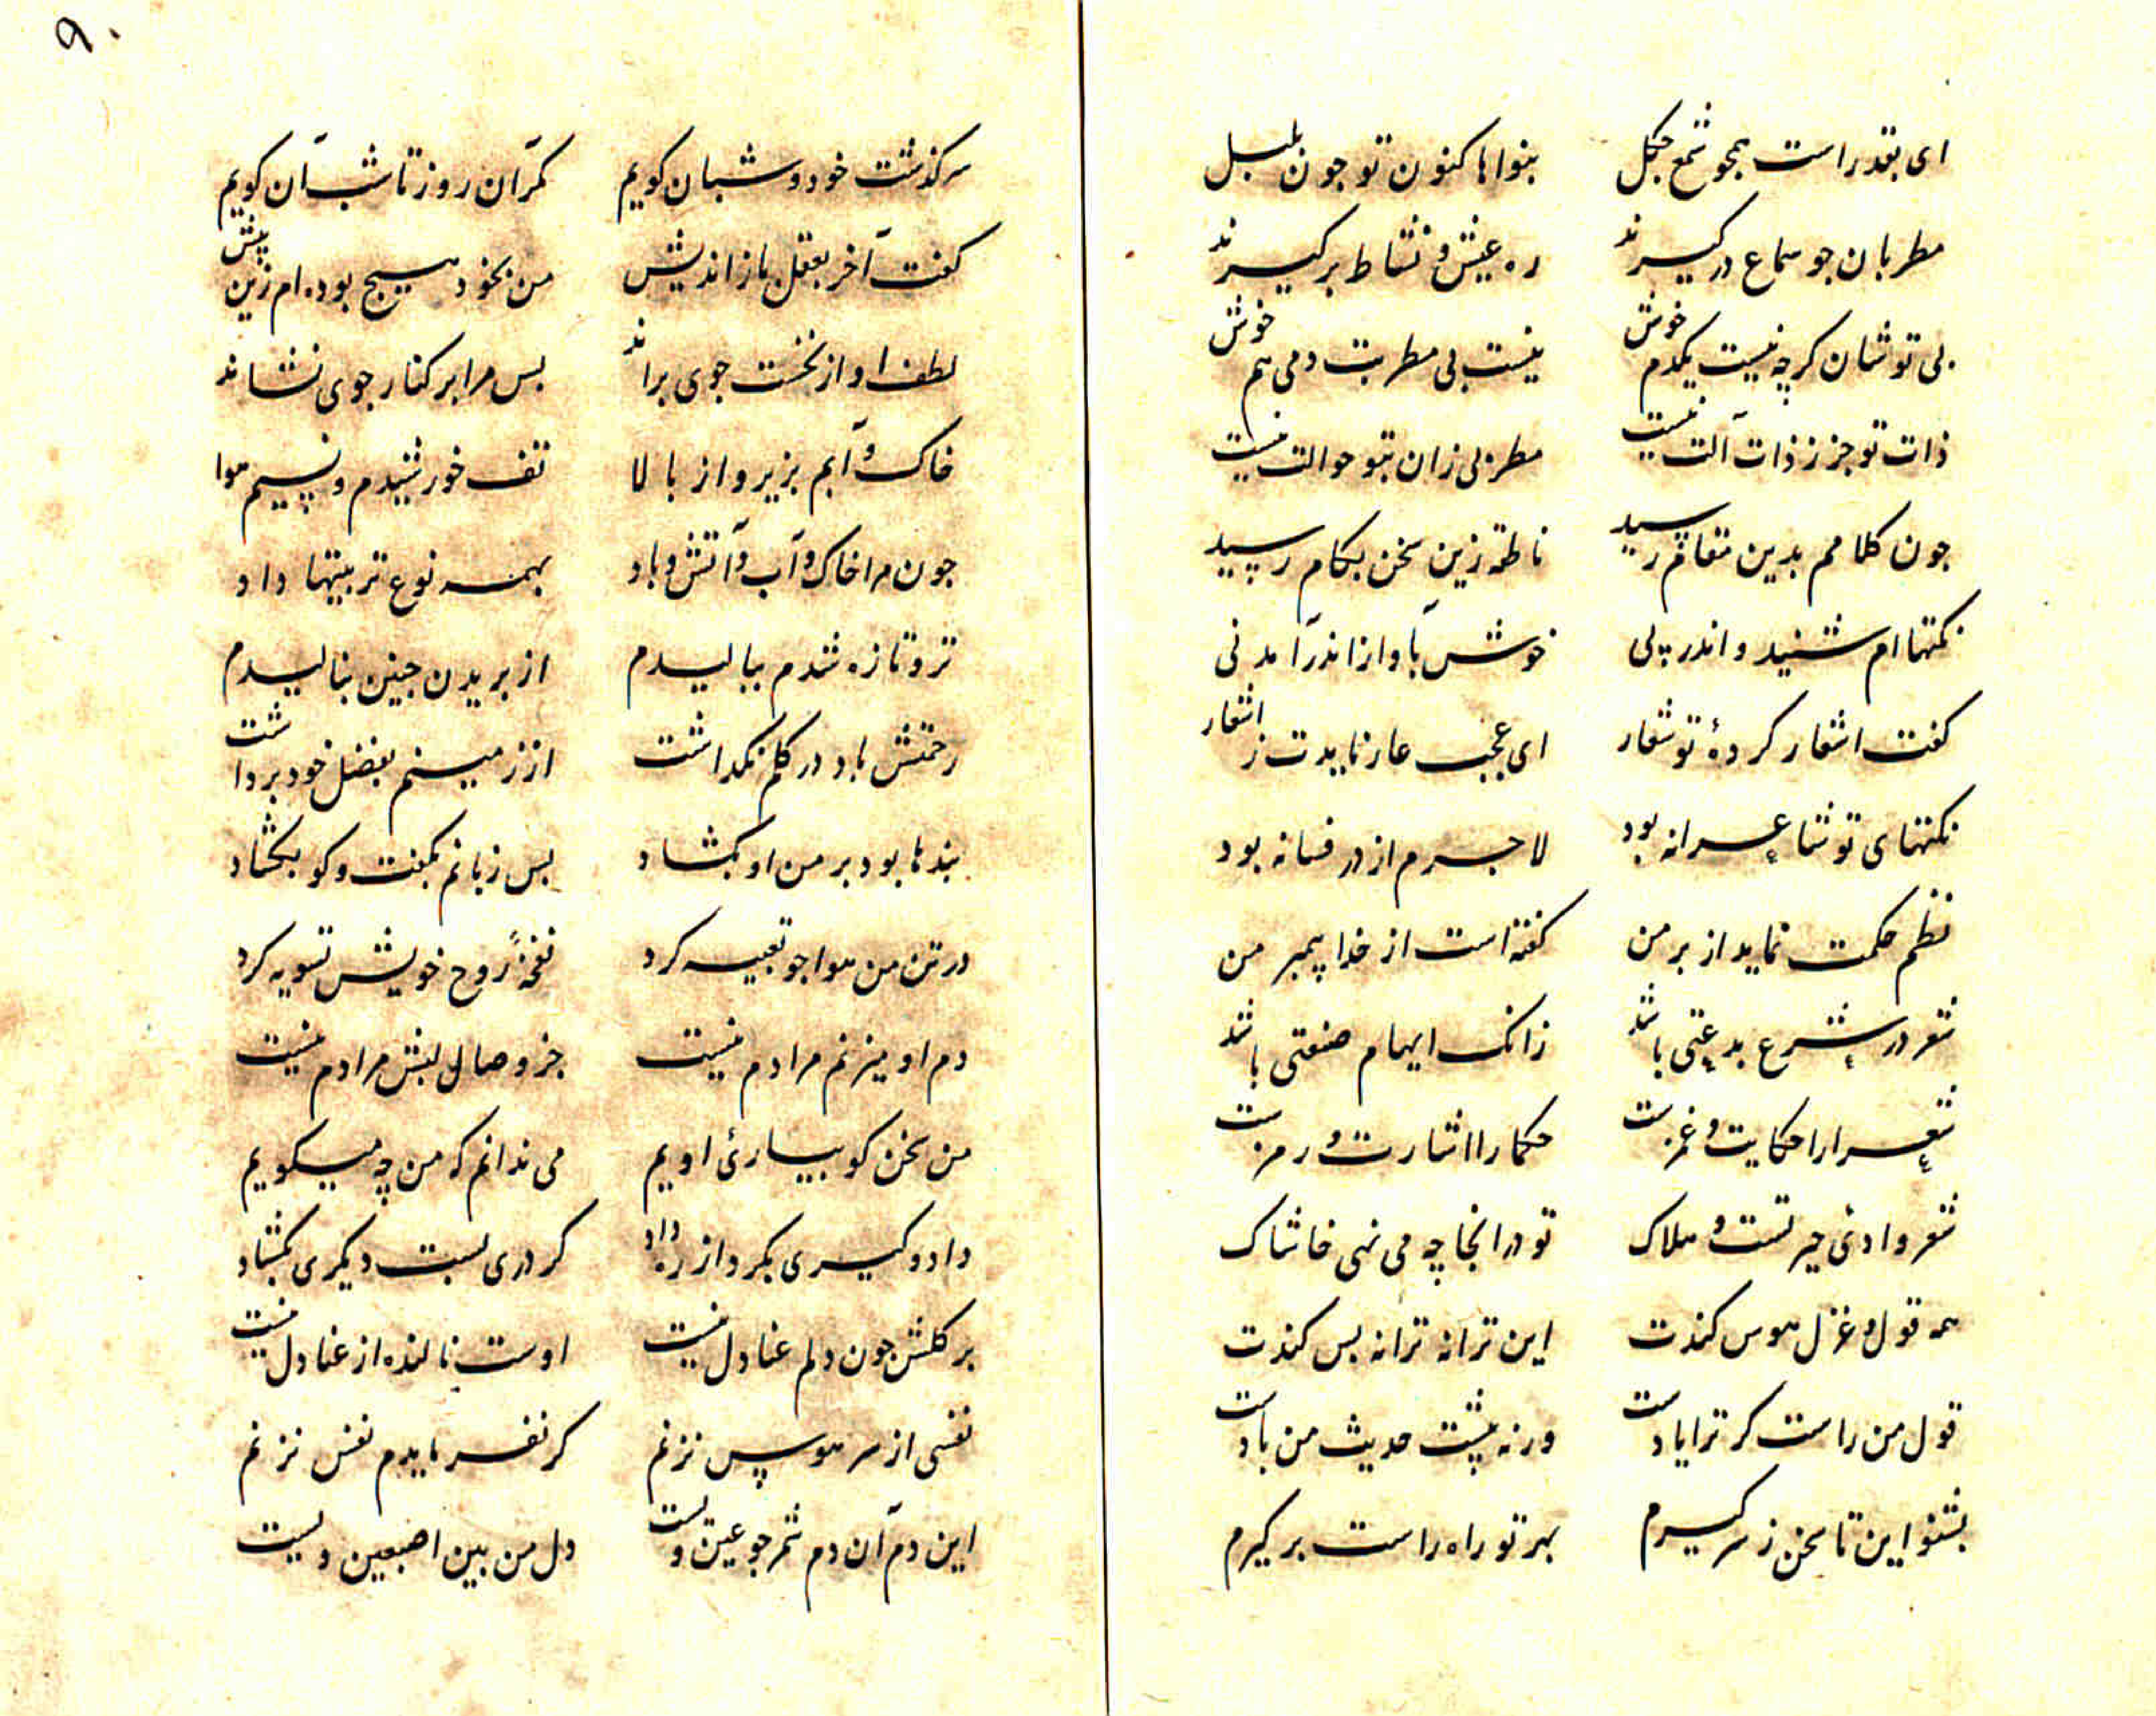 ای بقد راست همجو شمع جکل بنوا ها کنون تو جون بلبل
مطربان جو سماع در کیرند ره عیش و نشاط بر کیرند
بی تو شان کرچه نیست یکدم خوش نیست بی مطربت دمی هم خوش
ذات تو جز ز ذات آلت نیست مطربی زان بتو حوالت نیست
جون کلامم بدین مقام رسید ناطقه زین سخن بکام رسید
نکتها ام شنید و اندر پی خوش بآواز اندر آمد نی
کفت اشعار کردهٔ تو شعار ای عجب عار نایدت ز اشعار
نکتهای تو شاعرانه بود لاجرم از در فسانه بود
نظم حکمت نماید از بر من کفته است از خدا پیمبر من
شعر در شرع بدعتی باشد زانک ایهام صنعتی باشد
شعرا را حکایت و غمزست حکما را اشارت و رمزست
شعر وادی حیرتست و هلاک تو در انجا چه می نهی خاشاک
همه قول و غزل هوس کندت این ترانه ترا نه بس کندت
قول من راست کر ترا یادست ورنه پیشت حدیث من بادست
بشنو این تا سخن ز سر کیرم بهر تو راه راست بر کیرم
۹۰
سرکذشت خود و شبان کویم کمر آن روز تا شب آن کویم
کفت آخر بعقل باز اندیش من بخود هیچ بوده ام زین پیش
لطف او از نخست جوی براند بس مرا بر کنار جوی نشاند
خاک و آبم بزیر و از بالا تف خورشیدم و نسیم هوا
جون مرا خاک و آب و آتش و باد بهمه نوع تربیتها داد
تر و تازه شدم ببالیدم از بریدن جنین بنالیدم
رحمتش باد در کلم نکداشت از زمینم بفضل خود برداشت
بندها بود بر من او بکشاد بس زبانم بکفت و کو بکشاد
در تن من هوا جو تعبیه کرد نفخهٔ روح خویش تسویه کرد
دم او میزنم مرا دم نیست جز وصال لبش مرادم نیست
من سخن کو بیاریٔ اویم می ندانم که من چه میکویم
داد و کیری بکرد از ره داد کر دری بست دیکری بکشاد
بر کلش جون دلم عنادل نیست اوست نالنده از عنا دل نیست
نفسی از سر هوس نزنم کر نفرمایدم نفس نزنم
این دم آن دم شمر جو عین ویست دل من بین اصبعین ویست